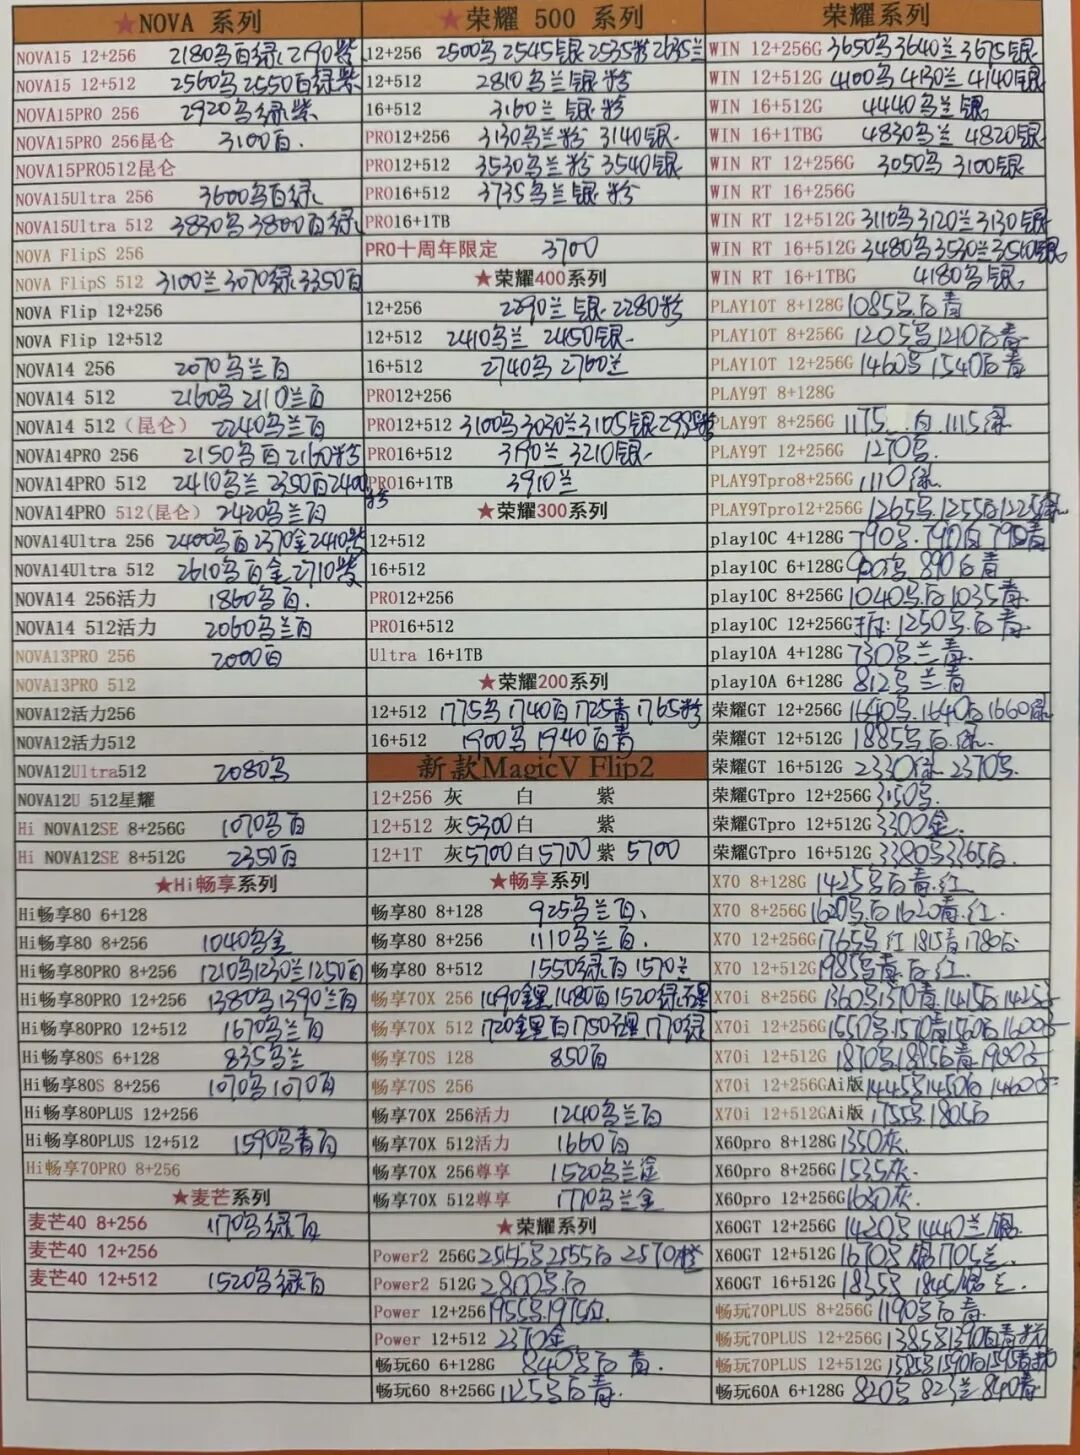 ★NOVA 系列
NOVA15 12+256 2180乌百绿 2190紫
NOVA15 12+512 2560乌 2550百绿紫
NOVA15PRO 256 2920乌绿紫
NOVA15PRO 256昆仑 3100百
NOVA15PRO512昆仑
NOVA15Ultra 256 3600乌百绿
NOVA15Ultra 512 3830乌 3800百绿
NOVA FlipS 256
NOVA FlipS 512 3100兰 3070绿 3350百
NOVA Flip 12+256
NOVA Flip 12+512
NOVA14 256 2070乌兰百
NOVA14 512 2160乌 2110兰百
NOVA14 512(昆仑) 2240乌兰百
NOVA14PRO 256 2150乌百 2160粉
NOVA14PRO 512 2410乌兰 2350百 2400粉
NOVA14PRO 512(昆仑) 2420乌兰百
NOVA14Ultra 256 2400乌百 2370金 2410紫
NOVA14Ultra 512 2610乌百金 2710紫
NOVA14 256活力 1860乌百
NOVA14 512活力 2060乌兰百
NOVA13PRO 256 2000百
NOVA13PRO 512
NOVA12活力256
NOVA12活力512
NOVA12Ultra512 2080乌
NOVA12U 512星耀
Hi NOVA12SE 8+256G 1070乌百
Hi NOVA12SE 8+512G 2350百
★Hi畅享系列
Hi畅享80 6+128
Hi畅享80 8+256 1040乌金
Hi畅享80PRO 8+256 1210乌 1230兰 1250百
Hi畅享80PRO 12+256 1380乌 1390兰百
Hi畅享80PRO 12+512 1670乌兰百
Hi畅享80S 6+128 835乌兰
Hi畅享80S 8+256 1070乌 1070百
Hi畅享80PLUS 12+256
Hi畅享80PLUS 12+512 1590乌青百
Hi畅享70PRO 8+256
★麦芒系列
麦芒40 8+256 1170乌绿百
麦芒40 12+256
麦芒40 12+512 1520乌绿百
★荣耀 500 系列
12+256 2500乌 2545银 2535粉 2635兰
12+512 2810乌兰银粉
16+512 3160兰银粉
PRO12+256 3130乌兰粉 3140银
PRO12+512 3530乌兰粉 3540银
PRO16+512 3735乌银粉
PRO16+1TB
PRO十周年限定 3700
★荣耀400系列
12+256 2290兰银 2280粉
12+512 2410乌兰 2450银
16+512 2740乌 2760兰
PRO12+256
PRO12+512 3100乌 3030兰 3105银
PRO16+512 3190兰 3210银
PRO16+1TB 3910兰
★荣耀300系列
12+512
16+512
PRO12+256
PRO16+512
Ultra 16+1TB
★荣耀200系列
12+512 1775乌 1740百 1725青 1765粉
16+512 1900乌 1940百青
新款MagicV Flip2
12+256 灰 白 紫
12+512 灰5300白 紫
12+1T 灰5700白5700紫5700
★畅享系列
畅享80 8+128 925乌兰百
畅享80 8+256 1110乌兰百
畅享80 8+512 1550绿百 1570兰
畅享70X 256 1490金黑 1480百 1520绿
畅享70X 512 1720金黑百 1770绿
畅享70S 128 850百
畅享70S 256
畅享70X 256活力 1240乌兰百
畅享70X 512活力 1660百
畅享70X 256尊享 1520乌兰金
畅享70X 512尊享 1770乌兰金
★荣耀系列
Power2 256G 2555乌 2555白 2570橙
Power2 512G 2800乌白
Power 12+256 1955乌 1975白
Power 12+512 2370金
畅玩60 6+128G 840乌白青
畅玩60 8+256G 1125乌白青
荣耀系列
WIN 12+256G 3650乌 3640兰 3675银
WIN 12+512G 4100乌 4130兰 4140银
WIN 16+512G 4440乌兰银
WIN 16+1TBG 4830乌兰 4820银
WIN RT 12+256G 3050乌 3100银
WIN RT 16+256G
WIN RT 12+512G 3110乌 3120兰 3130银
WIN RT 16+512G 3480乌 3530兰 3510银
WIN RT 16+1TBG 4180乌银
PLAY10T 8+128G 1085乌白青
PLAY10T 8+256G 1205乌 1210白青
PLAY10T 12+256G 1460乌 1540白青
PLAY9T 8+128G
PLAY9T 8+256G 1175 白 1115绿
PLAY9T 12+256G 1270乌
PLAY9Tpro8+256G 1110绿
PLAY9Tpro12+256G 1265乌 1255白 1225绿
play10C 4+128G 790乌 790白 795青
play10C 6+128G 900乌 890白青
play10C 8+256G 1040乌白 1035青
play10C 12+256G 拆: 1250乌白青
play10A 4+128G 730乌兰青
play10A 6+128G 812乌兰青
荣耀GT 12+256G 1640乌 1640白 1660绿
荣耀GT 12+512G 1885乌白绿
荣耀GT 16+512G 2330绿 2370乌
荣耀GTpro 12+256G 3150乌
荣耀GTpro 12+512G 3300金
荣耀GTpro 16+512G 3380乌 3365白
X70 8+128G 1425乌白青红
X70 8+256G 1620乌白 1620青红
X70 12+256G 1765乌红 1815青 1780白
X70 12+512G 1985乌青白红
X70i 8+256G 1360乌 1370青 1415白
X70i 12+256G 1557乌 1570青 1560白
X70i 12+512G 1870乌 1885白青
X70i 12+256GAi版 1445乌 1450白
X70i 12+512GAi版 1755乌 1805白
X60pro 8+128G 1350灰
X60pro 8+256G 1535灰
X60pro 12+256G 1630灰
X60GT 12+256G 1420乌 1440兰银
X60GT 12+512G 1670乌银 1705兰
X60GT 16+512G 1835乌 1845银兰
畅玩70PLUS 8+256G 1190乌白青
畅玩70PLUS 12+256G 1385乌 1390白青
畅玩70PLUS 12+512G 1585乌 1590白 1595青
畅玩60A 6+128G 820乌 823兰 840青